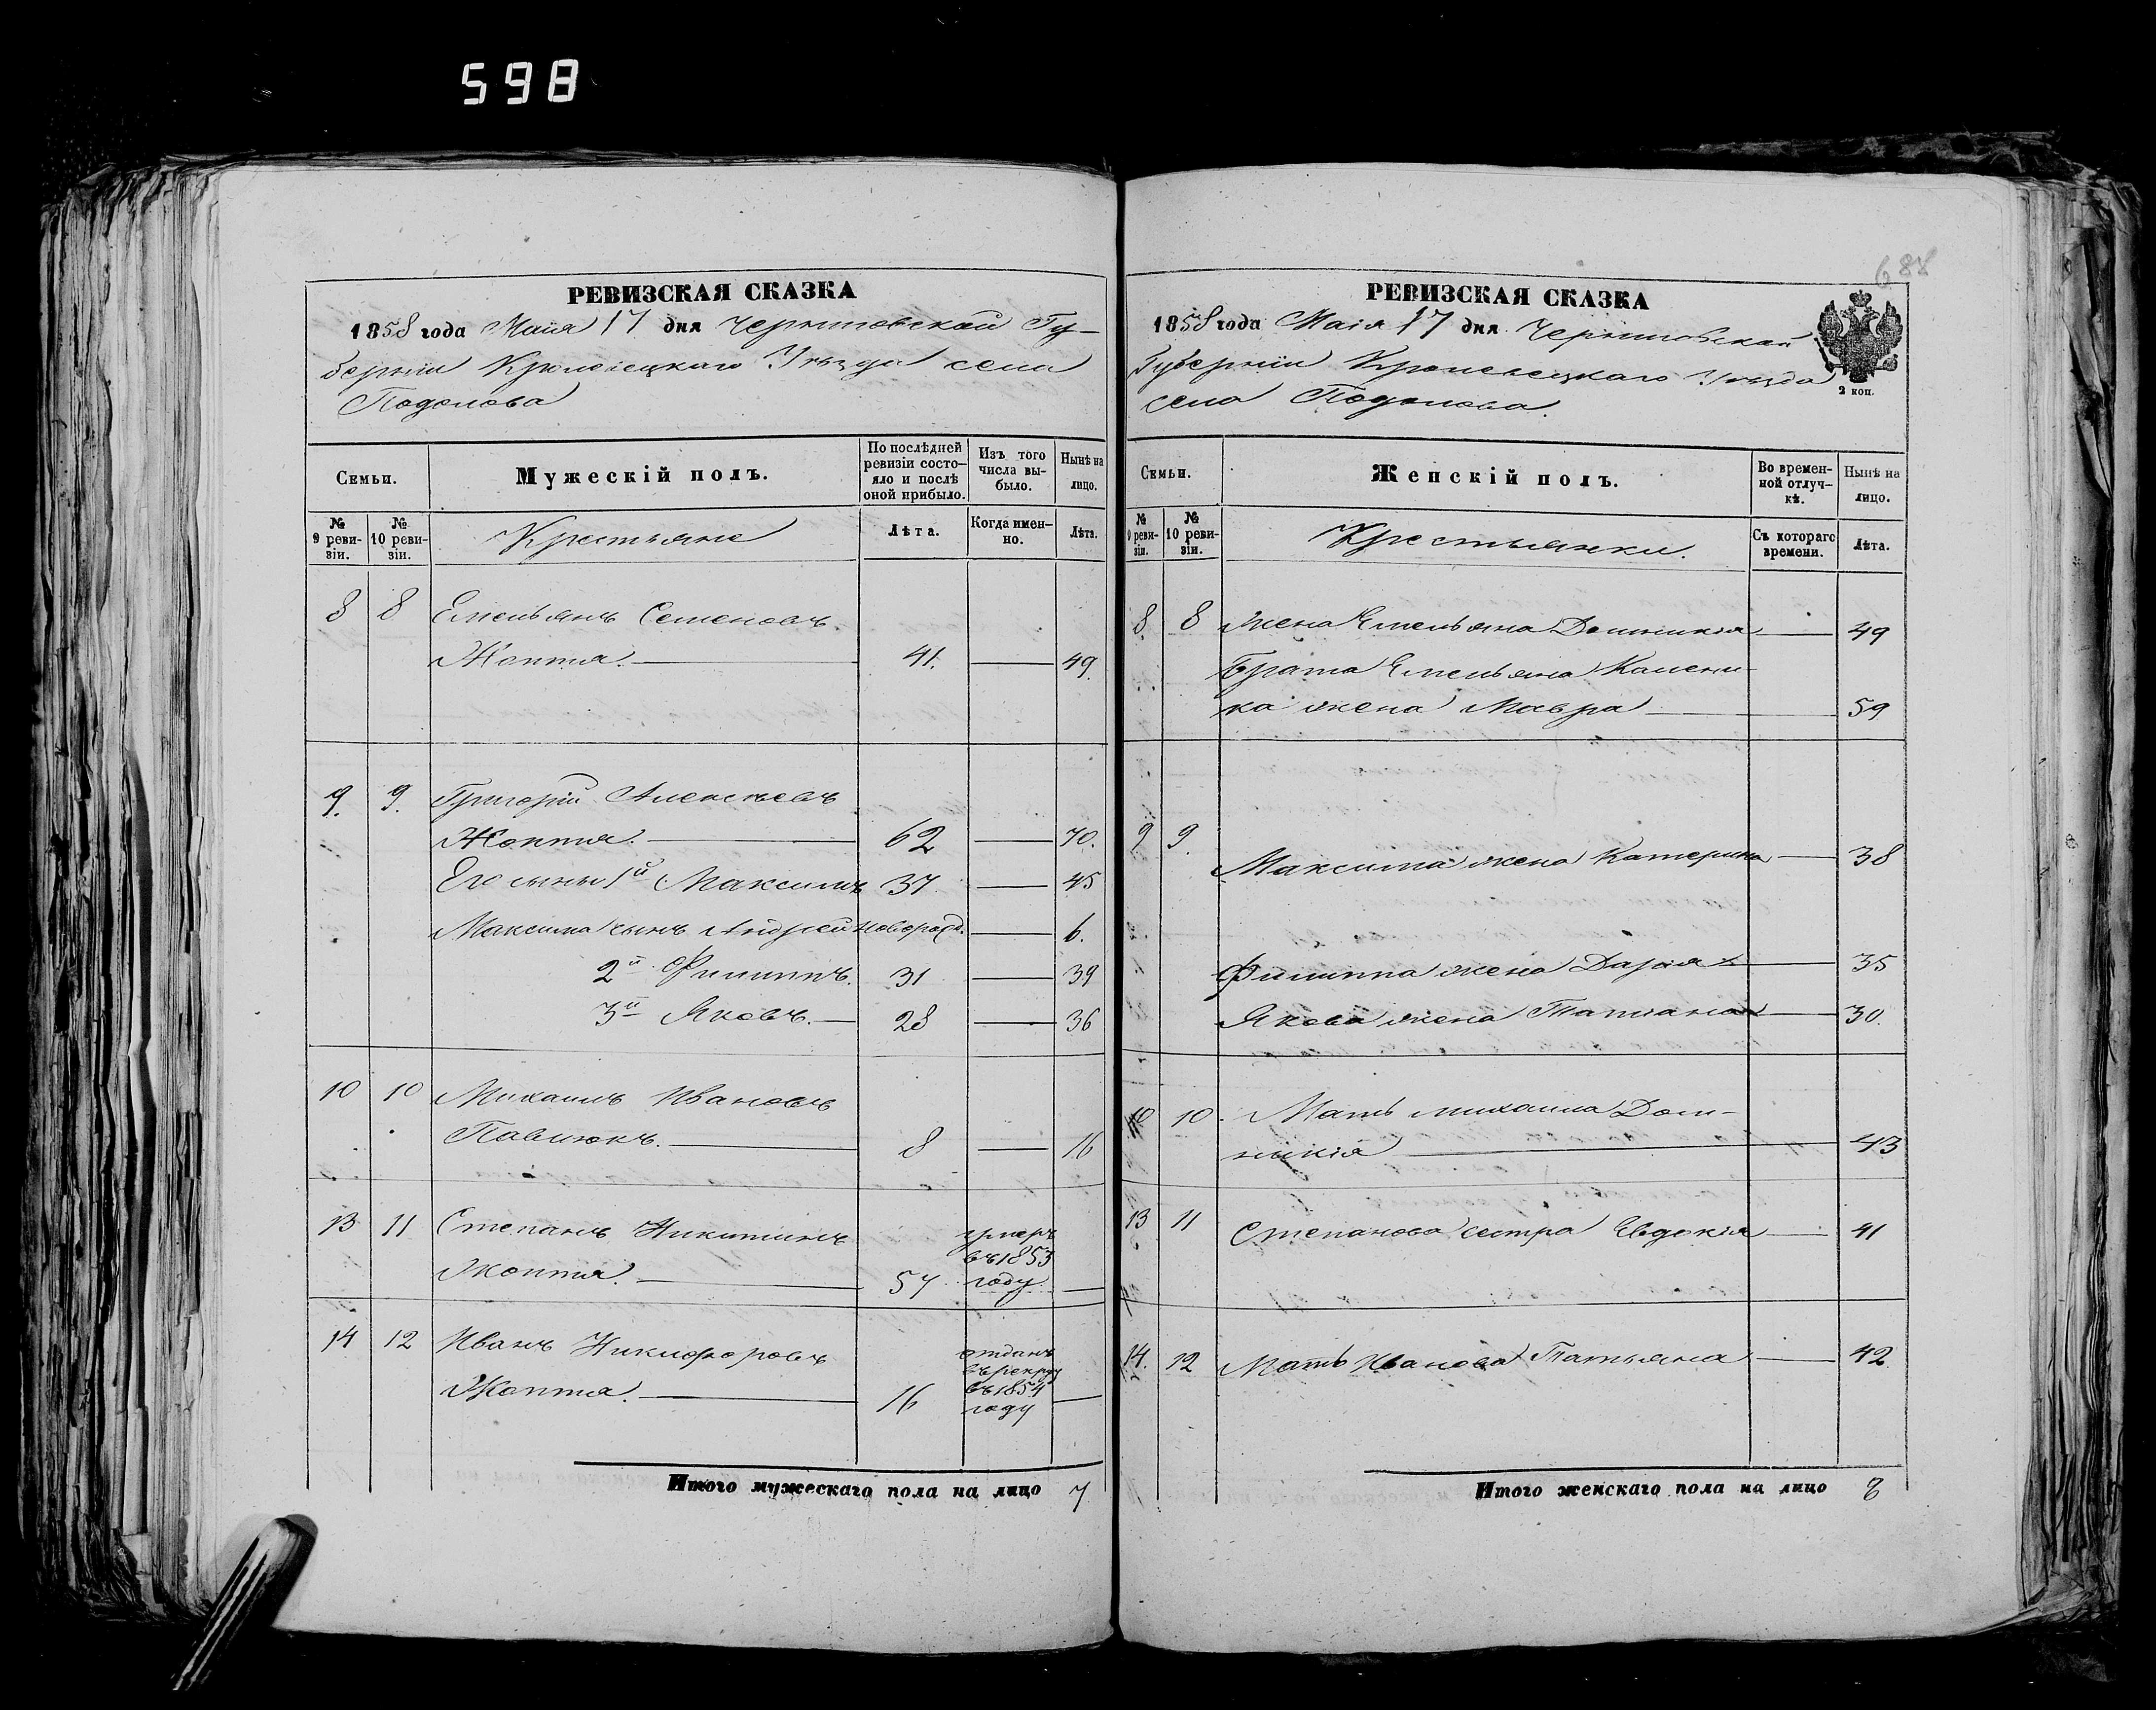 598
688
РЕВИЗСКАЯ СКАЗКА
1858 года Маія 17 дня Черниговской Гу-
берніи Кролевецкаго Уезда села
Подолова
Семьи.
Мужескій полъ.
По послѣдней ревизіи состо-яло и послѣ оной прибыло.
Изъ того числа вы-было.
Нынѣ на лицо.
№ 9 реви-зіи.
№ 10 реви-зіи.
Крестьяне
Лѣта.
Когда имен-но.
Лѣта.
8 8 Емельянъ Семеновъ
Жопта. 41. 49.
9. 9. Григорій Алексѣевъ
Жопта. 62 70.
Его сыны 1й Максимъ 37 45
Максима сынъ Андрей новорожд. 6.
2й Филиппъ. 31 39
3й Яковъ. 28 36
10 10 Михаилъ Ивановъ
Павлюкъ. 8 16
13 11 Степанъ Никитинъ
Жопта. 57 умеръ въ 1853 году
14 12 Иванъ Никифоровъ
Жопта. 16 отданъ въ рекру въ 1854 году
Итого мужескаго пола на лицо 7
РЕВИЗСКАЯ СКАЗКА
1858 года Маія 17 дня Черниговской
Губерніи Кролевецкаго Уезда
села Подолова.
2 коп.
Семьи.
Женскій полъ.
Во времен-ной отлуч-кѣ.
Нынѣ на лицо.
№ 9 реви-зіи.
№ 10 реви-зіи.
Крестьянки.
Съ котораго времени.
Лѣта.
8 8 Жена Емельяна Домникія 49
Брата Емельяна Калени-
ка жена Мавра 59
9 9. Максима жена Катерина 38
Филиппа жена Дарія 35
Якова жена Татіана 30.
10 10. Мать Михаила Дом-
никія 43
13 11 Степанова сестра Евдокія 41
14. 12 Мать Иванова Татьяна 42
Итого женскаго пола на лицо 8